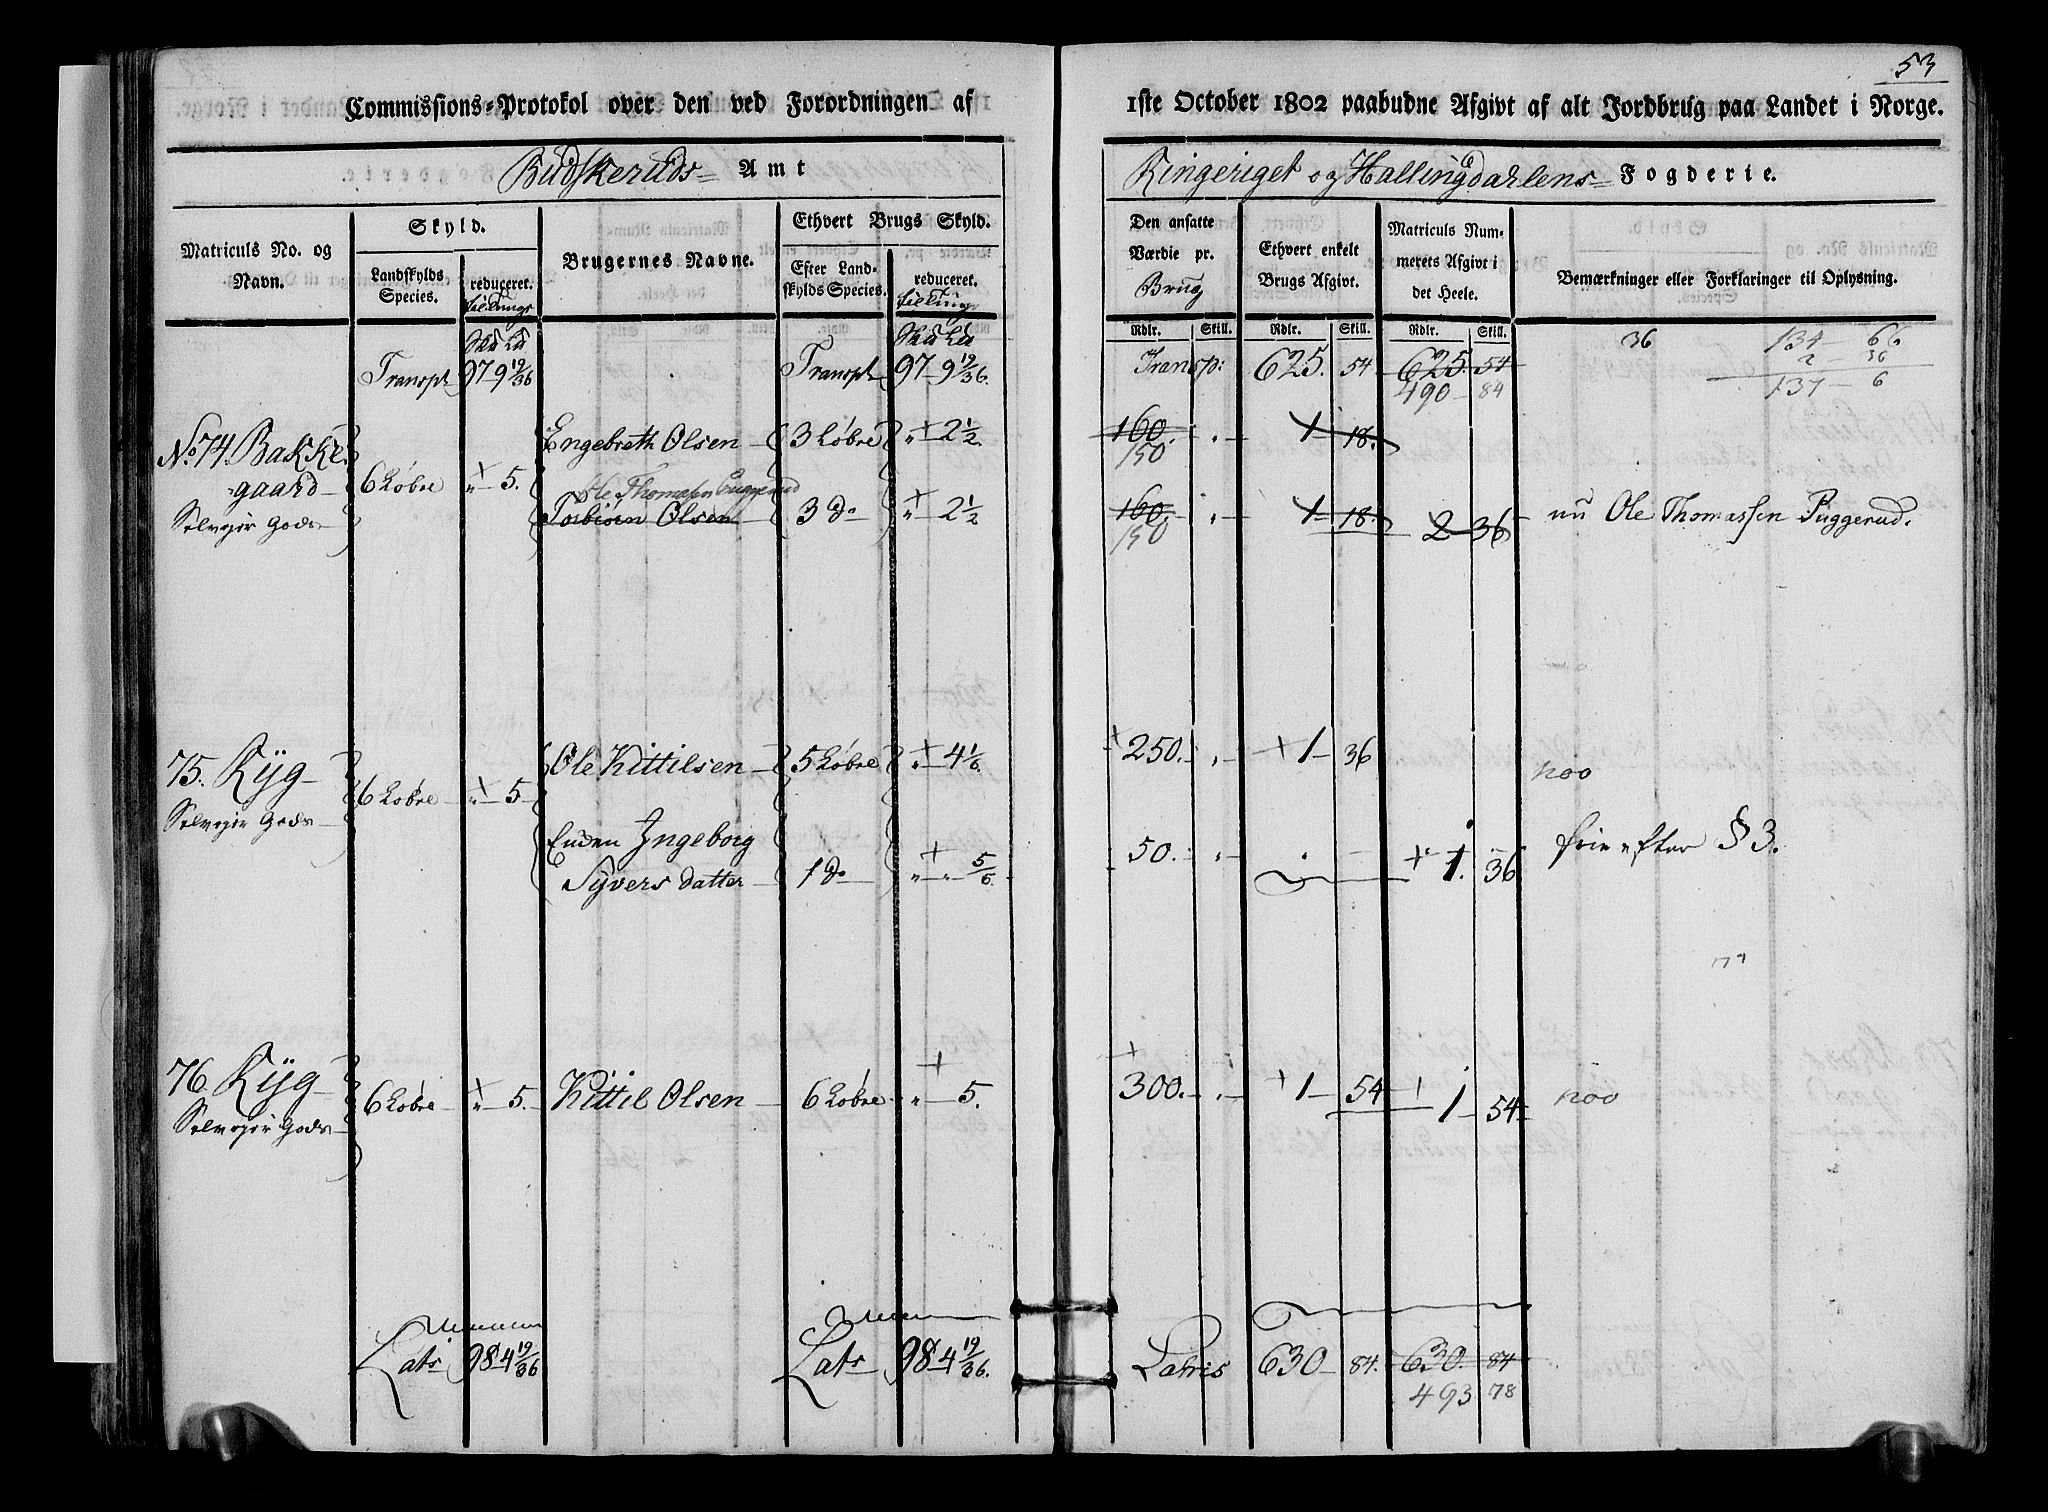 53
Commissions-Protokol over den ved Forordningen af 1ste October 1802 paabudne Afgivt af alt Jordbrug paa Landet i Norge.
Budskeruds Amt
Ringeriget og Hallingdahlens Fogderie.
Matriculs No. og Navn.
Skyld.
Landskylds Species.
reduceret.
Brugernes Navne.
Ethvert Brugs Skyld.
Efter Landskylds Species.
reduceret.
Den ansatte Værdie pr. Brug
Ethvert enkelt Brugs Afgivt.
Matriculs Nummerets Afgivt i det Heele.
Bemærkninger eller Forklaringer til Oplysning.
Rdlr. Skill. Rdlr. Skill. Rdlr. Skill.
36 134 - 66
2 - 36
137 - 6
Transpt 97 - 9 19/36 Transpt 97 - 9 19/36. Transp: 625. 54 625. 54
490 - 84
No. 74. Bakke- 6 Løbre " 5. Engebreth Olsen 3 Løbre " 2 1/2. 160. " 1 - 18.
gaard 150
Selvejer Gods Ole Thomasen Puggerud
Torbiørn Olsen 3 do " 2 1/2 160. " 1 - 18. 2 - 36 nu Ole Thomassen Puggerud.
150
75. Ryg 6 Løbre " 5. Ole Kittilsen 5 Løbre " 4 1/6. 250. " 1 - 36
Selvejer Gods
Enken Ingeborg
Syvers datter 1 do " " 5/6. 50. " 1. 36 frie efter § 3.
76. Ryg 6 Løbre " 5. Kittil Olsen 6 Løbre " 5. 300. " 1 - 54 1 - 54
Selvejer Gods
Lats 98 - 4 19/36 Lats 98 - 4 19/36. Latris 630 - 84. 630. 84
493 78